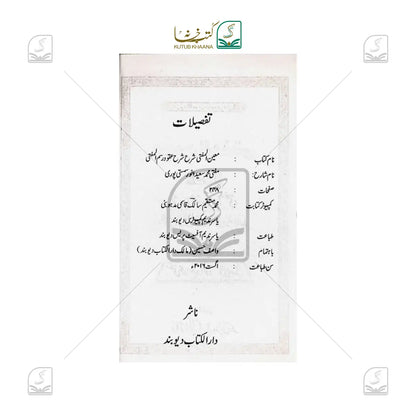 کتب خانہ
KUTUB KHAANA
تفصیلات
نام کتاب : معین المفتی شرح شرح عقود رسم المفتی
نام شارح : مفتی محمد سعید انور سستی پوری
صفحات : ۲۳۸
کمپیوٹر کتابت : محمد مستقیم سالک قاسمی مدہوبنی
یاسر ندیم کمپیوٹرس دیوبند
طباعت : یاسر ندیم آفسیٹ پریس دیوبند
باہتمام : واصف حسین (مالک دارالکتاب دیوبند)
سن طباعت : اگست ۲۰۱۶ء
ناشر
دارالکتاب دیوبند